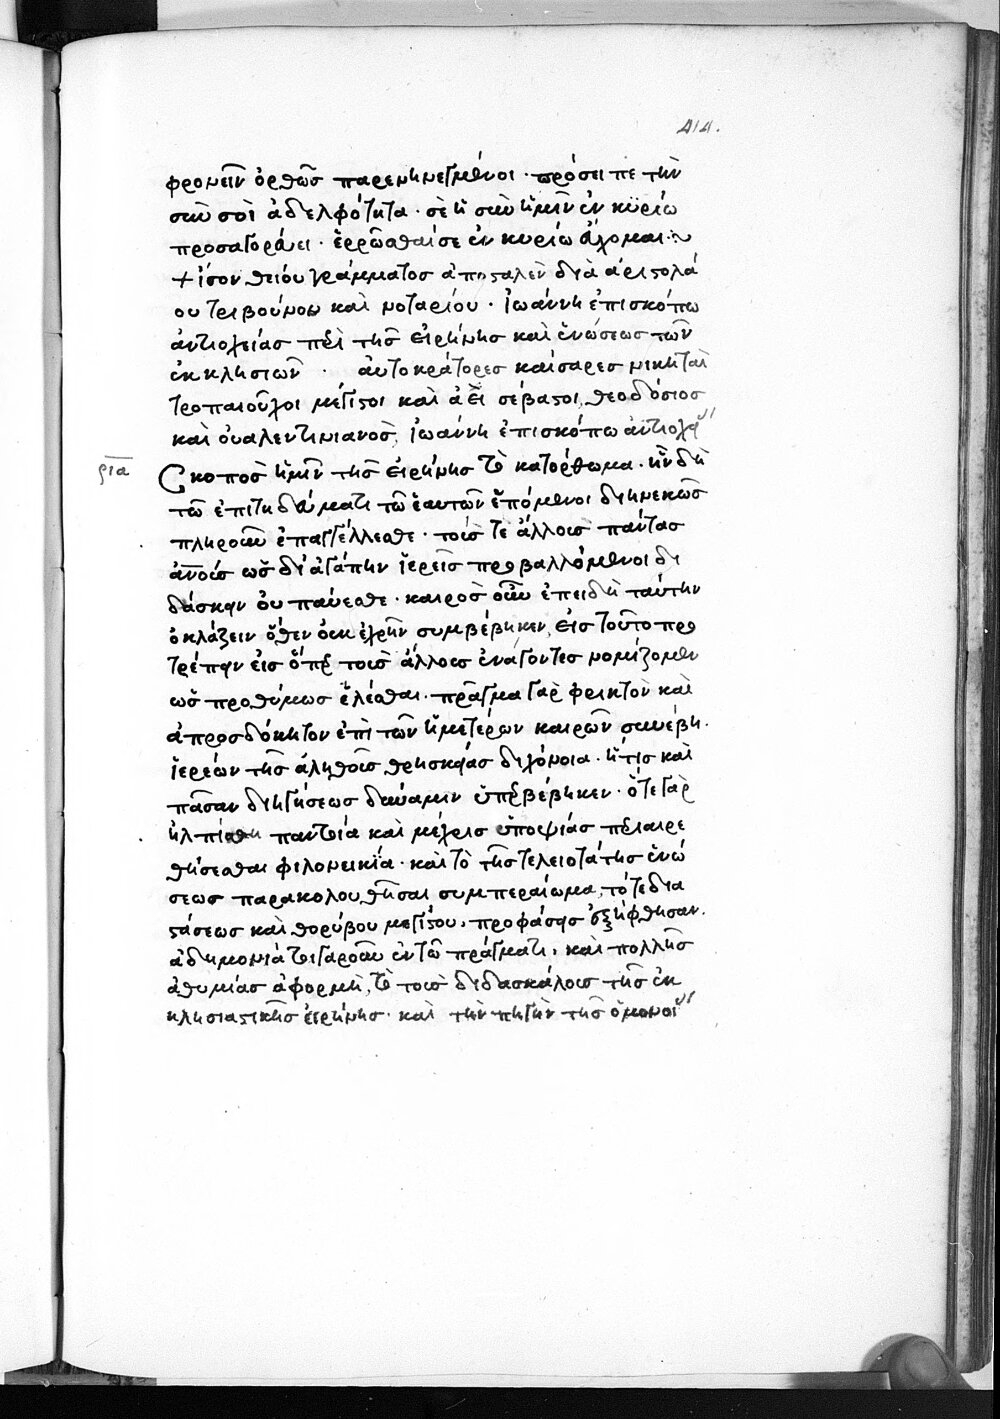 414.
φρονεῖν ὀρθῶς παρενηνεγμένοι · πρόσειπε τὴν
σὺν σοὶ ἀδελφότητα · σὲ ἡ σὺν ἡμῖν ἐν κυρίω
προσαγορεύει · ἐρρῶσθαί σε ἐν κυρίω εὔχομαι :~
+ ἴσον θείου γράμματος ἀποσταλὲν διὰ ἀριστολά
ου τριβούνου καὶ νοταρίου · ἰωάννη ἐπισκόπω
ἀντιοχείας περὶ τῆς εἰρήνης καὶ ἑνώσεως τῶν
ἐκκλησιῶν · αὐτοκράτορες καίσαρες νικηταὶ
τροπαιοῦχοι μέγιστοι καὶ ἀεὶ σέβαστοι, θεοδόσιος
καὶ οὐαλεντινιανὸς, ἰωάννη ἐπισκόπω ἀντιοχεί
ρια Σκοπὸς ἡμῖν τῆς εἰρήνης τὸ κατόρθωμα · ἣν δὴ
τῶ ἐπιτηδεύματι τῶ ἑαυτῶν ἑπόμενοι διηνεκῶς
πληροῦν ἐπαγγέλλεσθε · τοῖς τε ἄλλοις πάντας
ἀνοις ὡς δι ἀγάπην ἱερεῖς προβαλλόμενοι δι
δάσκειν οὐ παύεσθε · καιρὸς οὖν ἐπειδὴ ταύτην
ὀκλάζειν ὅθεν οὐκ ἐχρῆν συμβέβηκεν, εἰς τοῦτο προ
τρέπειν εἰς ὅπερ τοὺς ἄλλους ἐνάγοντες νομίζομεν
ὡς προθύμως ἕλεσθαι · πρᾶγμα γὰρ φρικτὸν καὶ
ἀπροσδόκητον ἐπὶ τῶν ἡμετέρων καιρῶν συνέβη ·
ἱερέων τῆς ἀληθοῦς θρησκείας διχόνοια · ἥτις καὶ
πᾶσαν διηγήσεως δύναμιν ὑπερβέβηκεν · ὅτε γὰρ
ἠλπίσθη παντοία καὶ μέχρις ὑποψίας περιαιρε
θήσεσθαι φιλονεικία · καὶ τὸ τῆς τελειοτάτης ἑνώ
σεως παρακολουθῆσαι συμπεραίωμα, τότε δια
στάσεως καὶ θορύβου μεγίστου · προφάσεις ἐξήφθησαν ·
ἀδημονία τοιγαροῦν ἐν τῶ πράγματι · καὶ πολλῆς
ἀθυμίας ἀφορμὴ, τὸ τοῖς διδασκάλοις τῆς ἐκ
κλησιαστικῆς εἰρήνης · καὶ τὴν πηγὴν τῆς ὁμονοί